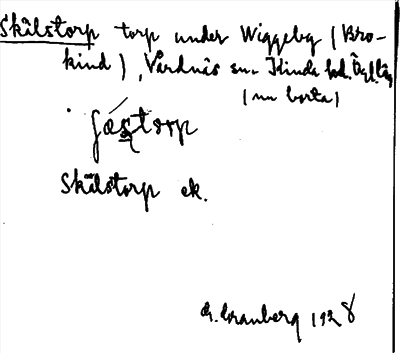 Skälstorp torp under Wiggeby (Bro-
kind), Vårdnäs sn. Kinda hd. Ögl. län
(nu borta)
Skälstorp ek.
Cranberg 1928